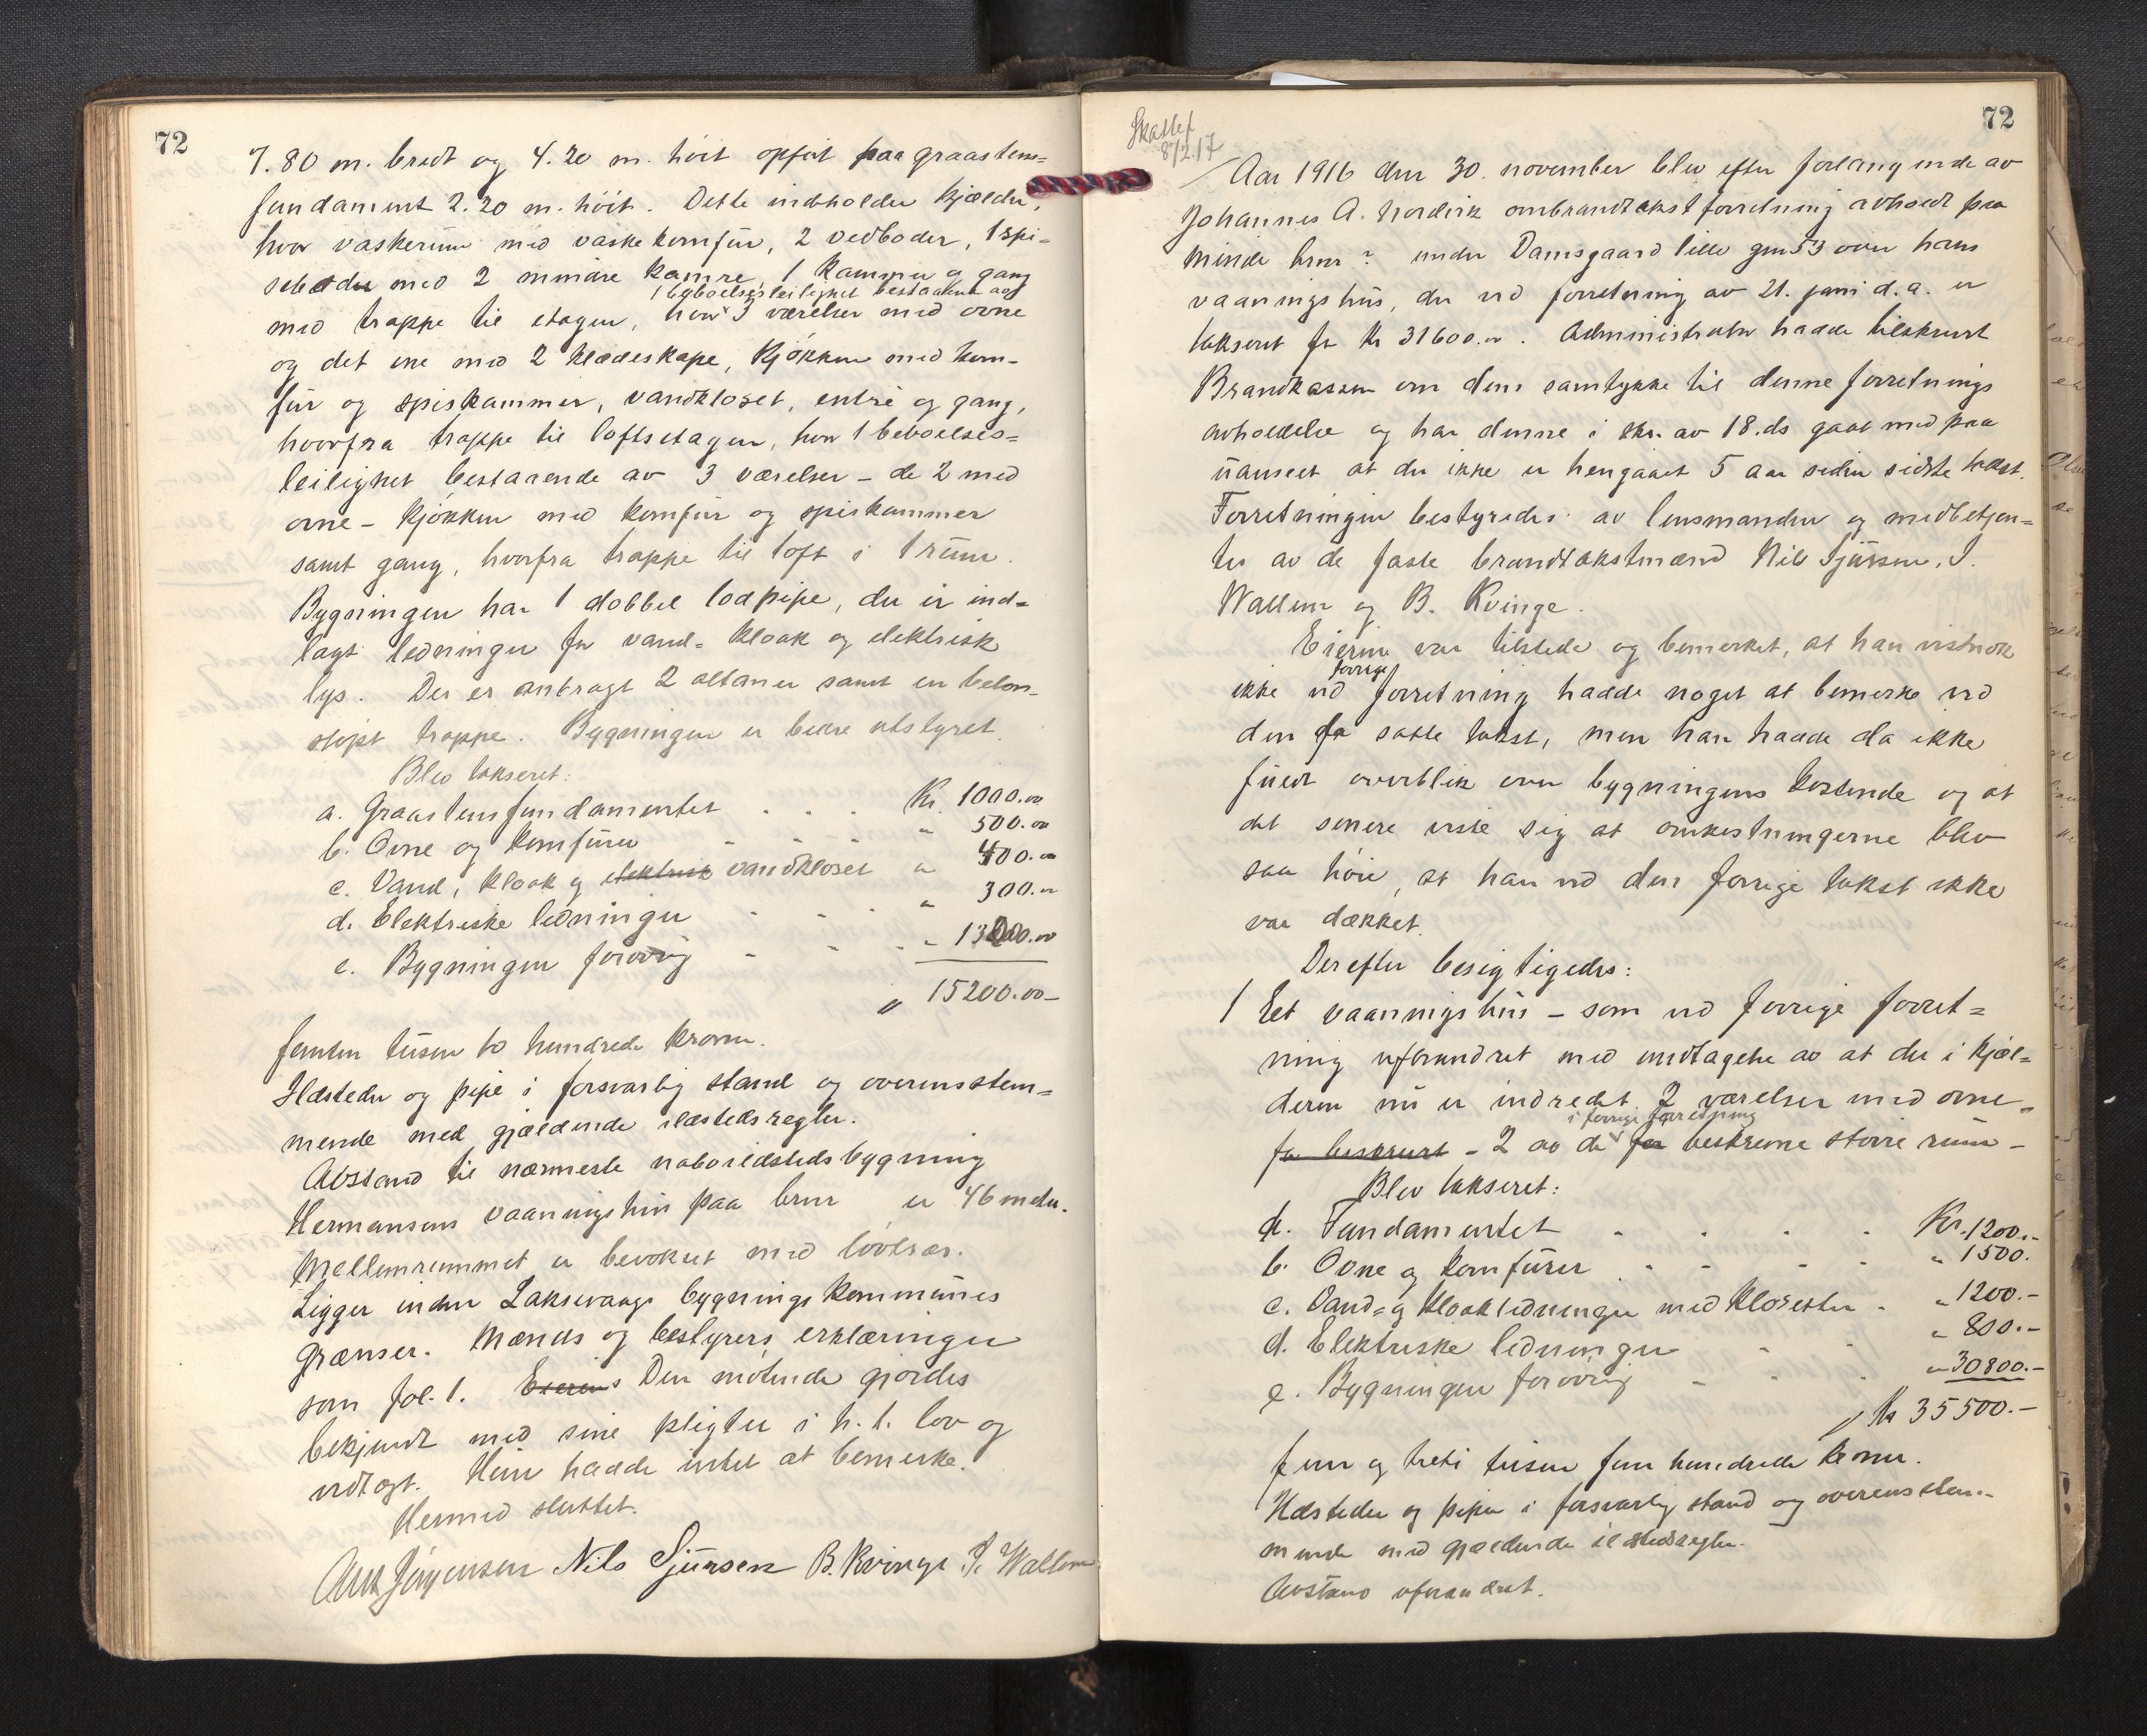 72
7.80 m. bredt og 4.20 m. höit opført paa graastens=
fundament 2.20 m. höit. Dette indeholder kjælder,
hvor vaskerum med vaskekomfur, 2 vedboder, 1 spi-
sebod med 2 mindre kamre, 1 kammer og gang
1 beboelsesleilighet bestaaende av
med trappe til etagen, hvor 3 værelser med ovne
og det ene med 2 klædeskape, kjøkken med kom-
fur og spiskammer, vandkloset, entré og gang,
hvorfra trappe til loftsetagen, hvor 1 beboelses=
leilighet bestaaende av 3 værelser - de 2 med
ovne - kjøkken med komfur og spiskammer
samt gang, hvorfra trappe til loft i 1 rum.
Bygningen har 1 dobbel lodpipe, der er ind=
lagt ledninger for vand= kloak og elektrisk
lys. Der er anbragt 2 altaner samt en beton-
støpt trappe. Bygningen er bedre utstyret.
Blev takseret:
a. Graastensfundamentet . . . Kr. 1000.00
b. Ovne og komfurer - - - " 500.00
c. Vand, kloak og elektrisk vandkloset " 400.00
d. Elektriske ledninger - - - " 300.00
e. Bygningen forøvrig - - - " 13000.00
" 15200.00-
femten tusen to hundrede kroner.
Ildsteder og pipe i forsvarlig stand og overensstem=
mende med gjældende ildstedsregler.
Avstand til nærmeste naboildstedsbygning
Hermansens vaaningshus paa brnr er 46 meter.
Mellemrummet er bevokset med løvtrær.
Ligger inden Laksevaags bygningskommunes
Grænser. Mænds og bestyrers erklæringer
som fol. 1. Eierens Den møtende gjordes
bekjendt med sine pligter i h. t. lov og
vedtægt. Hun hadde intet at bemerke.
Hermed sluttet.
Ant Jörgensen Nils Sjursen B. Kvinge I. Wallem
72
Skattef
8/2.17
Aar 1916 den 30. november blev efter forlangende av
Johannes A. Nordvik ombrandtakstforretning avholdt paa
Minde brnr ? under Damsgaard lille gnr 53 over hans
vaaningshus, der ved forretning av 21. juni d.a. er
takseret for Kr 31600.00. Administrator hadde tilskrevet
Brandkassen om dens samtykke til denne forretnings
avholdelse og har denne i skr. av 18. ds gaat med paa
uanseet at der ikke er hengaaet 5 aar siden sidste takst.
Forretningen bestyredes av lensmanden og medbetjen=
tes av de faste brandtakstmænd Nils Sjursen, I.
Wallem og B. Kvinge.
Eieren var tilstede og bemerket, at han vistnok
forrige
ikke ved forretning hadde noget at bemerke ved
den da satte takst, men han hadde da ikke
fuldt overblik over bygningens kostende og at
det senere viste sig at omkostningerne blev
saa høie, at han ved den forrige takst ikke
var dækket.
Derefter besigtigedes:
1 Et vaaningshus - som ved forrige forret=
ning uforandret med undtagelse av at der i kjæl=
deren nu er indredet 2 værelser med ovne=
i forrige forretning
før beskrevet - 2 av de før beskrevne større rum -
Blev takseret:
a. Fundamentet . . . . Kr. 1200.-
b. Ovne og komfurer . - - - - " 1500.
c. Vand= og kloakledninger med klosetter - " 1200.-
d. Elektriske ledninger - - " 800.-
e. Bygningen forøvrig - - . " 30800.-
Kr 35500.-
fem og treti tusen fem hundrede kroner.
Ildsteder og piper i forsvarlig stand og overensstem-
mende med gjældende ildstedsregler.
Avstand uforandret.